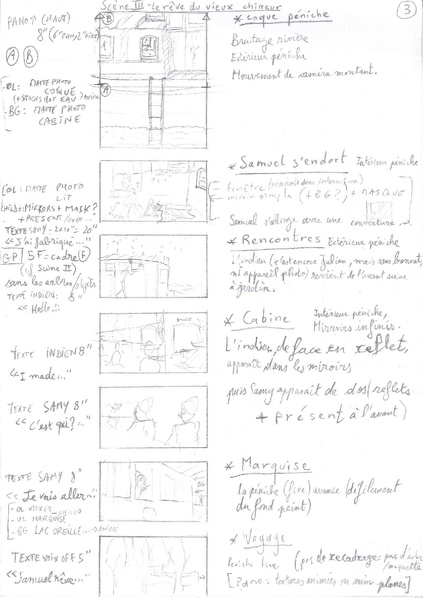 Scène III - Le rêve du vieux chineur
3
PANOT (HAUT)
8"
A B
B
A
OL: MATTE PHOTO
COQUE
BG: MATTE PHOTO
CABINE
* Coque péniche
Bruitage rivière
Extérieur péniche
Mouvement de caméra montant.
OL: MATTE PHOTO
LIT
MIRRORS + MASK?
+ PRESENT
TEXTE SAMY 20"
* Samuel s'endort Intérieur péniche
(+ BG?) + MASQUE
Samuel s'allonge avec une couverture
GP 5F = cadre F
(cf Scène II)
sans les arbres/objets
TEXTE INDIEN: 8"
"Hello...
* Rencontres Extérieur péniche
L'indien (c'est encore Julien, mais sans
ni appareil photo) revient de l'avant scène
à jardin.
TEXTE INDIEN 8"
"I made..."
* Cabine Intérieur péniche,
Miroirs infinis.
L'indien, de face en reflet,
apparaît dans les miroirs
puis Samy apparaît de dos/reflets
+ présent à l'avant)
TEXTE SAMY 8"
"c'est qui?..."
TEXTE SAMY 8"
"Je vais aller..."
OL VITRES
OL MARQUISE
BG LAC
* Marquise
La péniche (fixe) avance (défilement
du fond peint)
TEXTE VOIX OFF 5"
"Samuel rêve..."
* Voyage
Péniche live (pas de recadrage: pas d'autre
maquette
[Pano: textures animées ou mini planes]